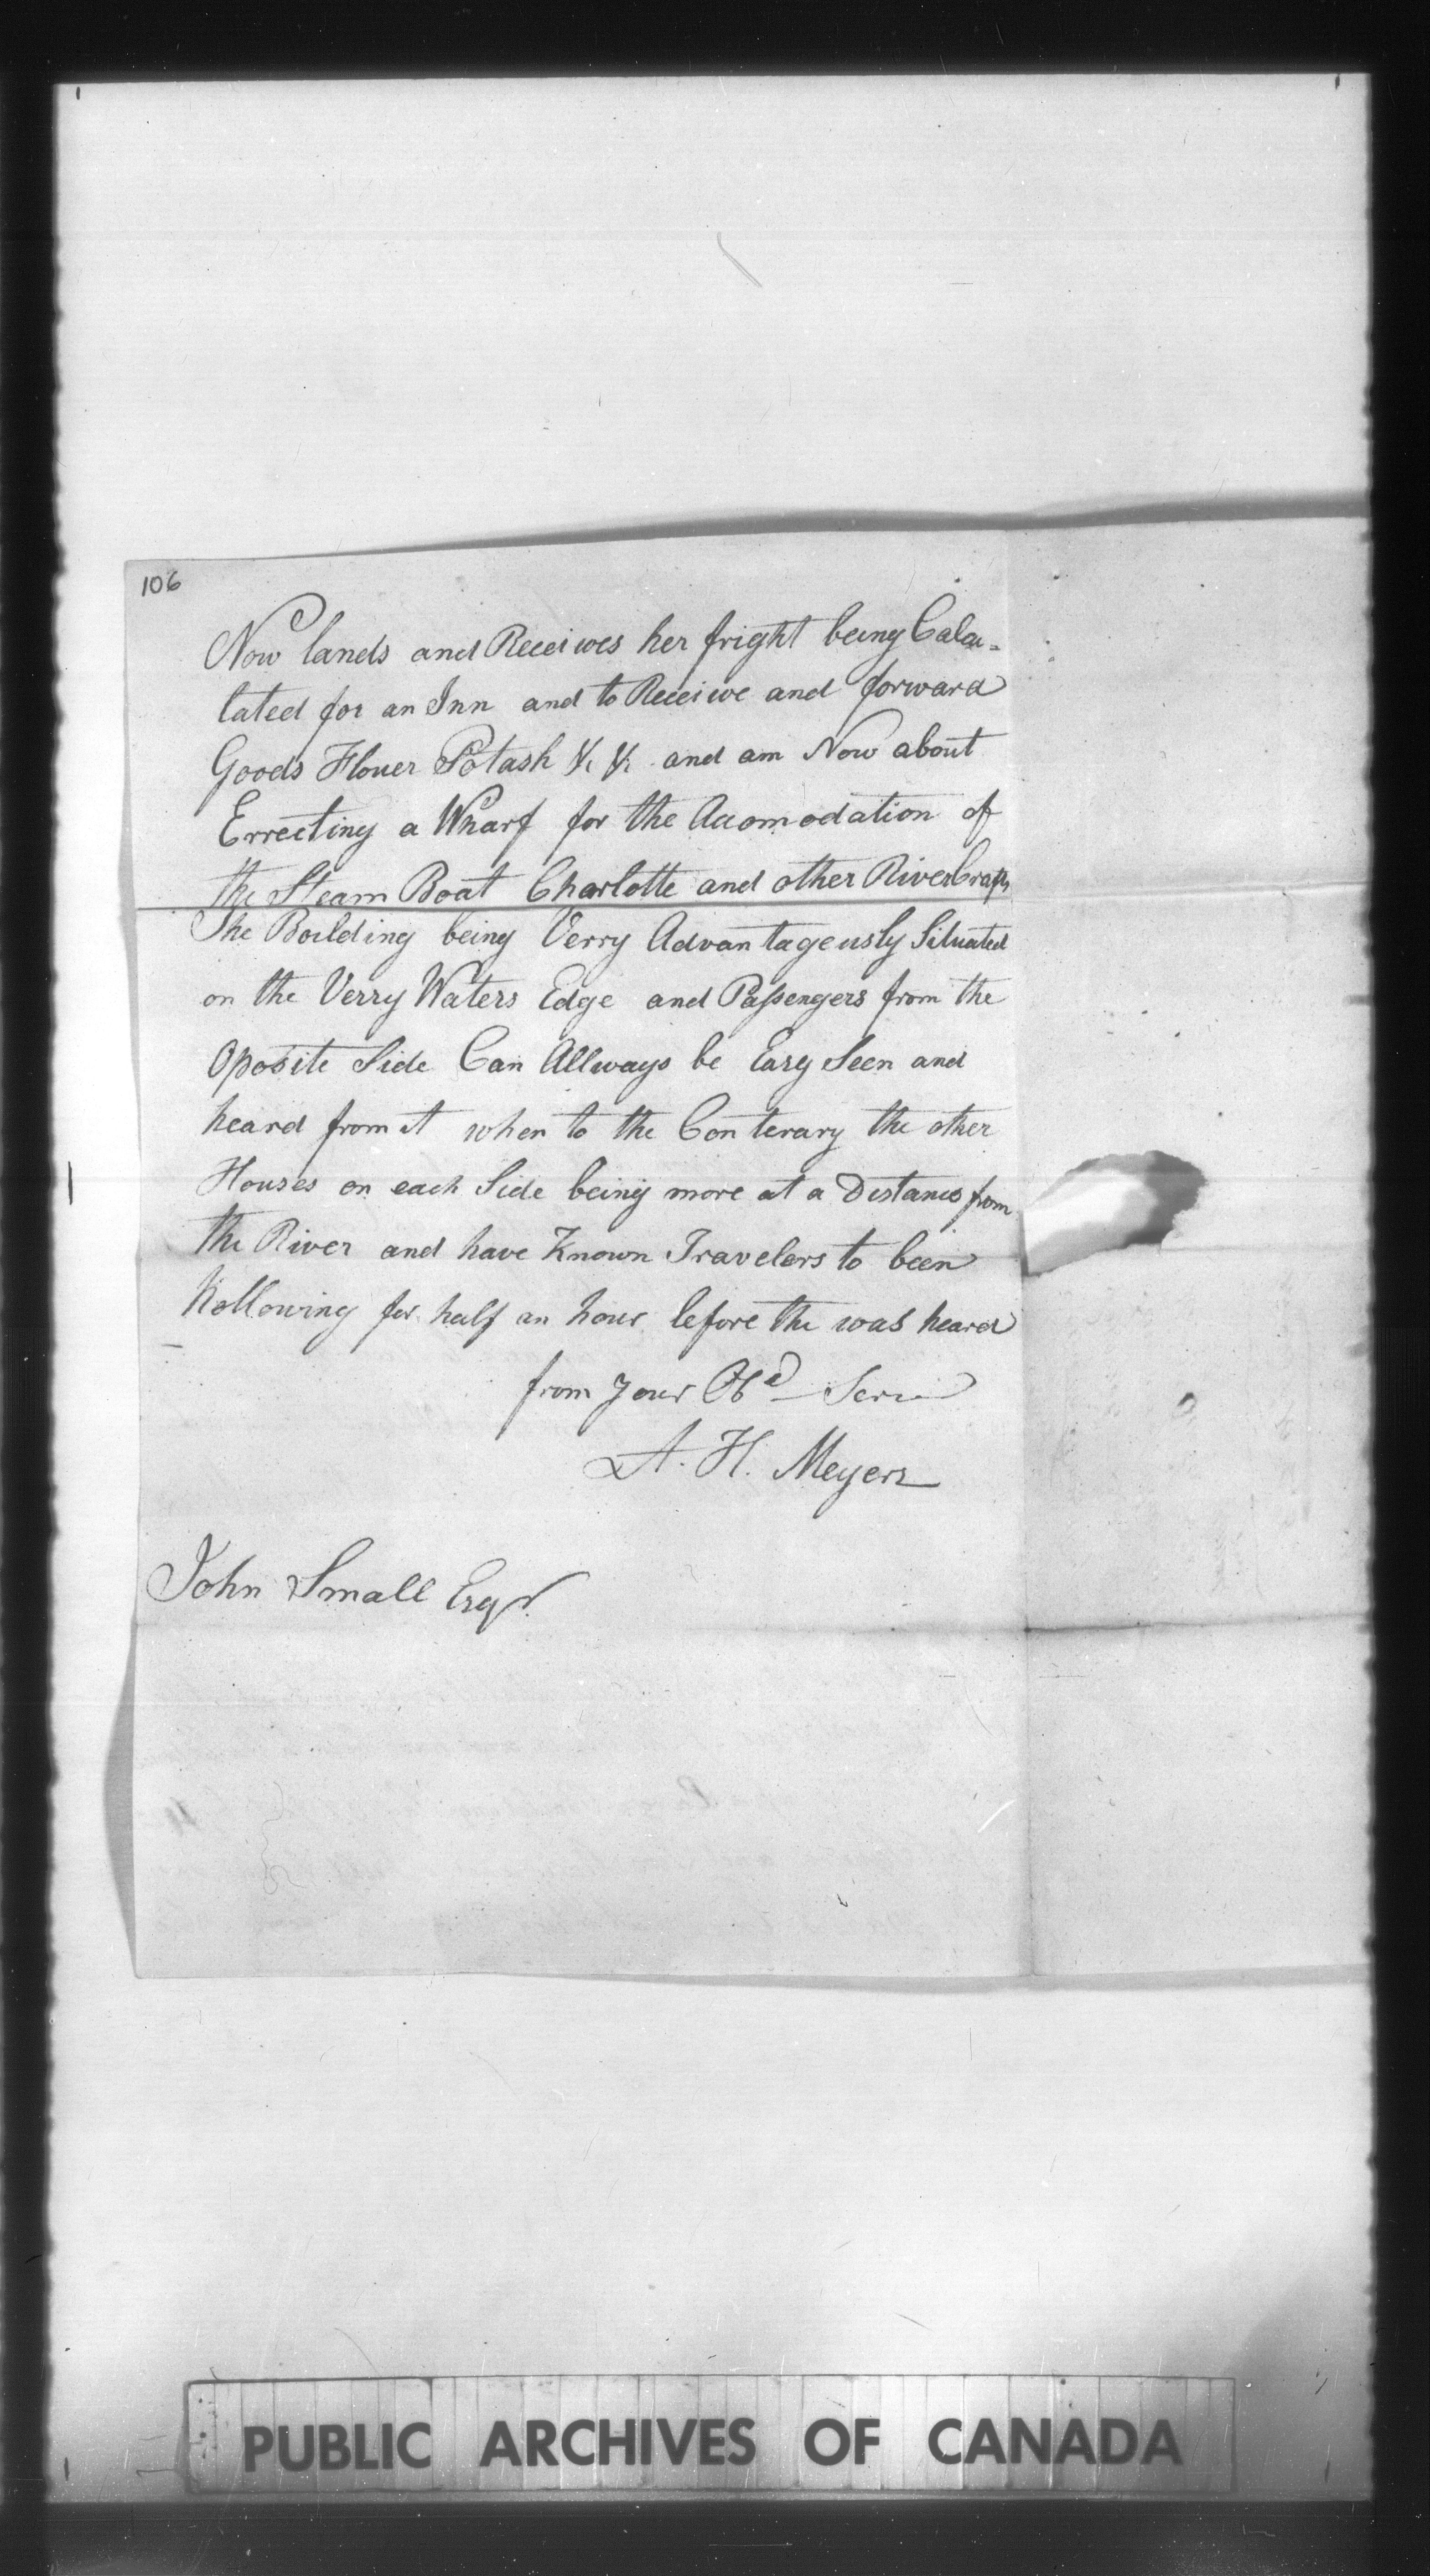 106
Now lands and Receives her fright being Calcu-
lated for an Inn and to Receive and forward
Goods Flouer Potash &c &c and am Now about
Errecting a Wharf for the Acomodation of
the Steam Boat Charlotte and other River Crafts
The Building being Verry Advantageusly Situated
on the Verry Waters Edge and Passengers from the
Oposite Side Can Allways be Easy Seen and
heard from it when to the Conterary the other
Houses on each Side being more at a Distance from
the River and have Known Travelers to been
Hollowing for half an hour before the was heard
from your Obd Serv
A. H. Meyers
John Small Esqr.
PUBLIC ARCHIVES OF CANADA